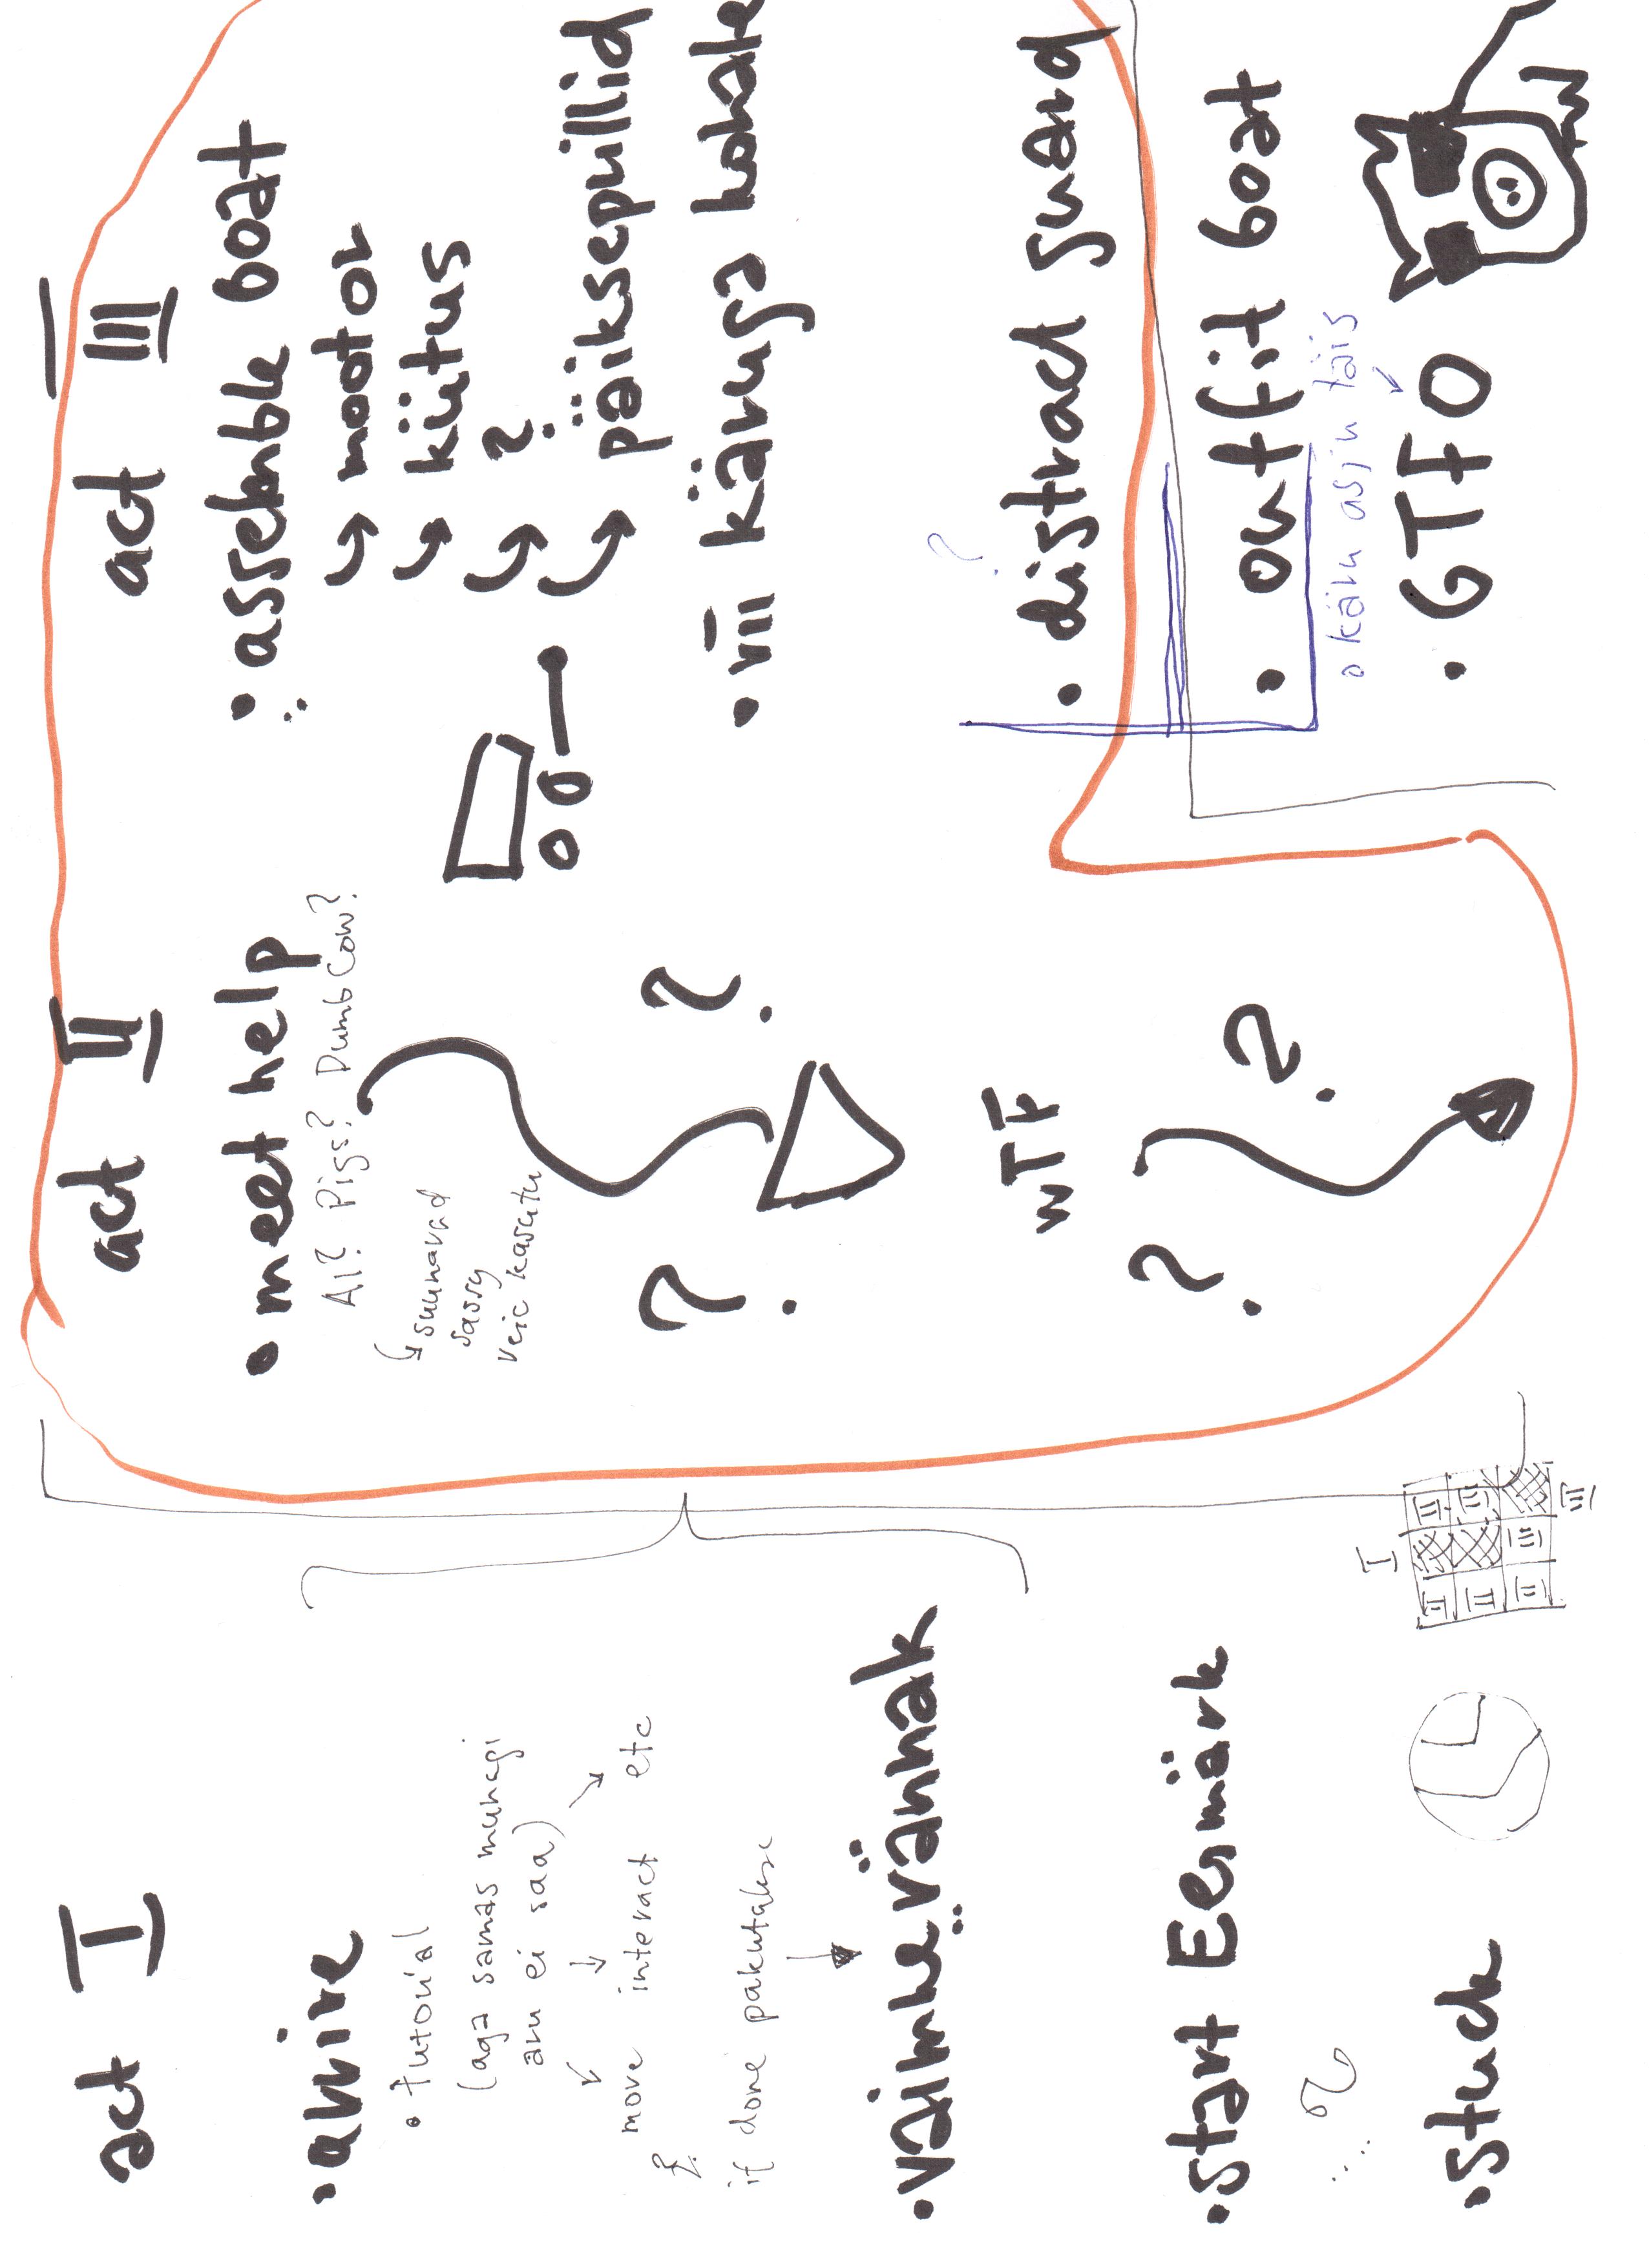 act I
• arrive
• tutorial
(aga samas muhagi
aru ei saa)
move interact etc
if done pakutakse
• vaimne rännak
• start Eesmärk
• stuck
I
II II
II III
II III
III
act II
• meet help
AI? Pigs? Dumb Cow?
suunavad
sassy
veic kasutu
? ?
WTF
?
?
act III
• assemble boat
mootor
kütus
?
päiksepillid
• vii käruga kohale
?
• distract guard
• outfit boat
• käru asju täis
• GTFO